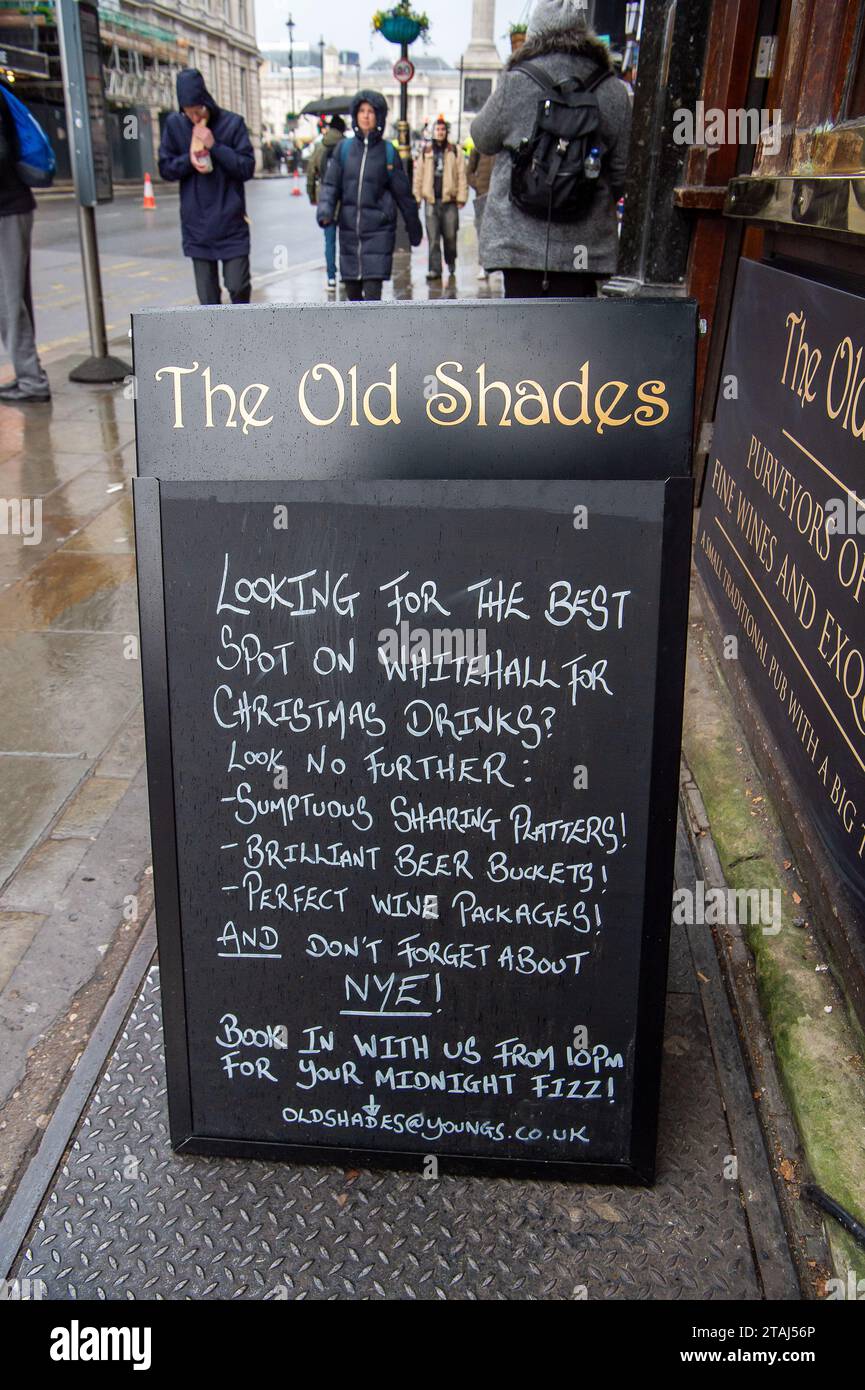 The Old Shades
LOOKING FOR THE BEST
SPOT ON WHITEHALL FOR
CHRISTMAS DRINKS?
LOOK NO FURTHER:
-SUMPTUOUS SHARING PLATTERS!
-BRILLIANT BEER BUCKETS!
-PERFECT WINE PACKAGES!
AND DON'T FORGET ABOUT
NYE!
BOOK IN WITH US FROM 10PM
FOR YOUR MIDNIGHT FIZZ!
OLDSHADES@YOUNGS.CO.UK
The Old
PURVEYORS OF
FINE WINES AND EXQU
A SMALL TRADITIONAL PUB WITH A BIG
20
alamy
Image ID: 2TAJ56P
www.alamy.com